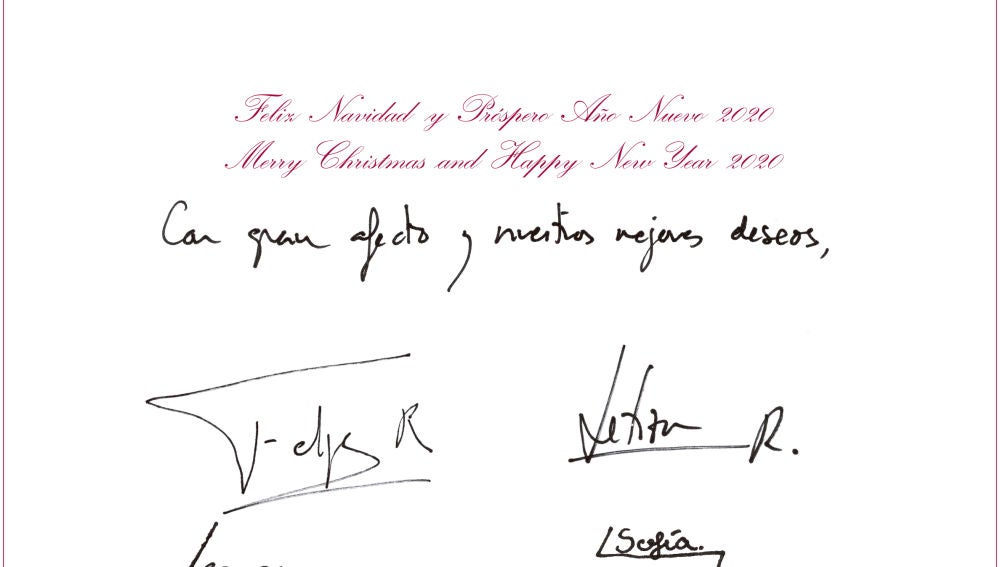 Feliz Navidad y Próspero Año Nuevo 2020
Merry Christmas and Happy New Year 2020
Con gran afecto y nuestros mejores deseos,
Felipe R
Letizia R.
Sofía.